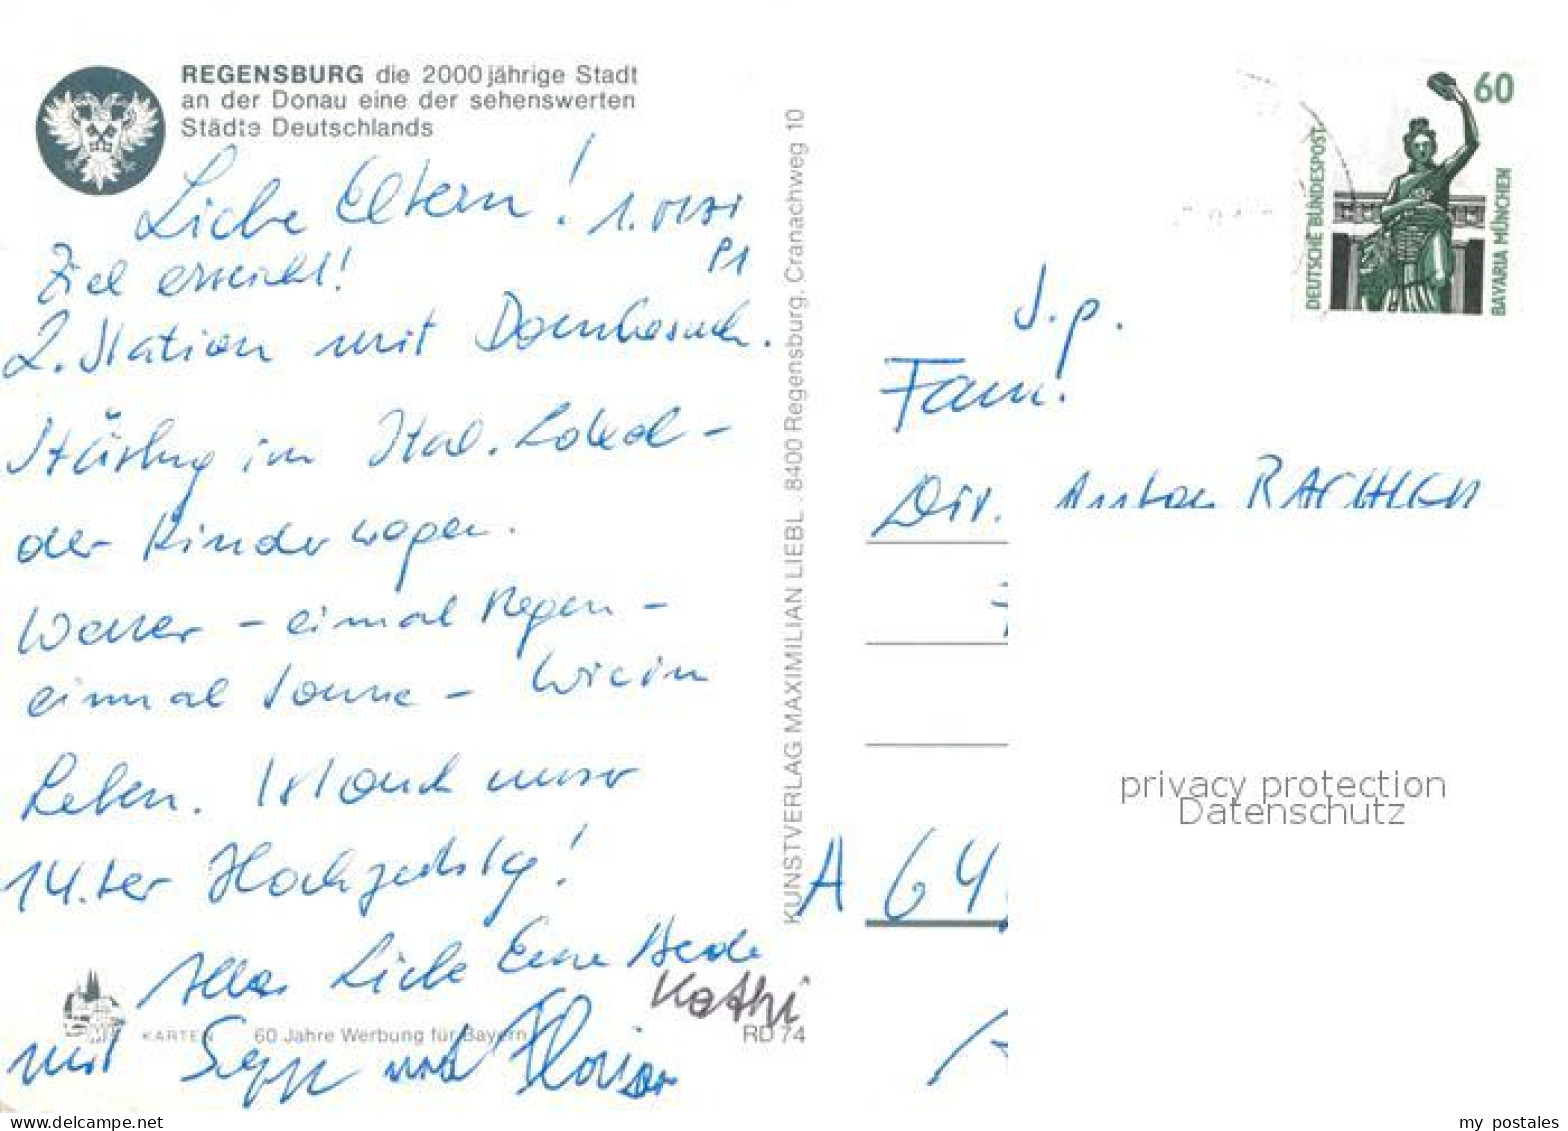 REGENSBURG die 2000jährige Stadt
an der Donau eine der sehenswerten
Städte Deutschlands
Liebe Eltern! 1.
Ziel erreicht!
2. Station mit Dombesuch.
Stärkung im Ital. Lokal -
der Kinder wegen.
Wetter - einmal Regen -
einmal Sonne - wie im
Leben. Ist auch unser
14.ter Hochzeitstg!
Alles Liebe Eure
Kathi
mit Sepp und Florian
KARTEN 60 Jahre Werbung für Bayern RD 74
KUNSTVERLAG MAXIMILIAN LIEBL . 8400 Regensburg, Cranachweg 10
60
DEUTSCHE BUNDESPOST
BAVARIA MÜNCHEN
Fam.
Dir. Anton
A 64
privacy protection
Datenschutz
my postales